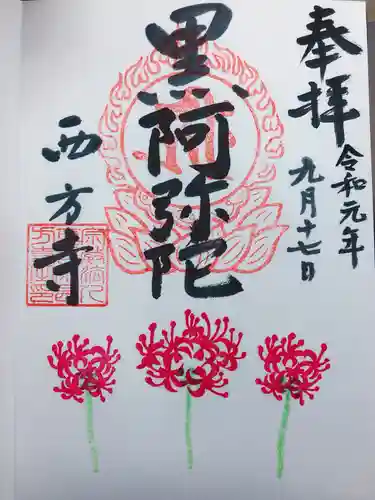 奉拝
令和元年
九月十七日
黒阿弥陀
西方寺